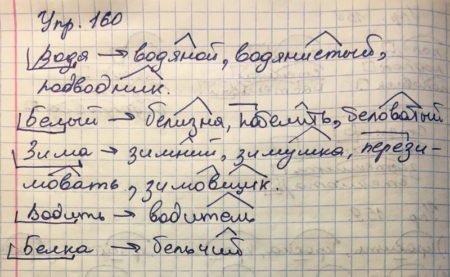 Упр. 160
Вода → водяной, водянистый,
подводник.
Белый → белизна, побелить, беловатый
Зима → зимний, зимушка, перези-
мовать, зимовщик.
Водить → водитель
Белка → бельчий